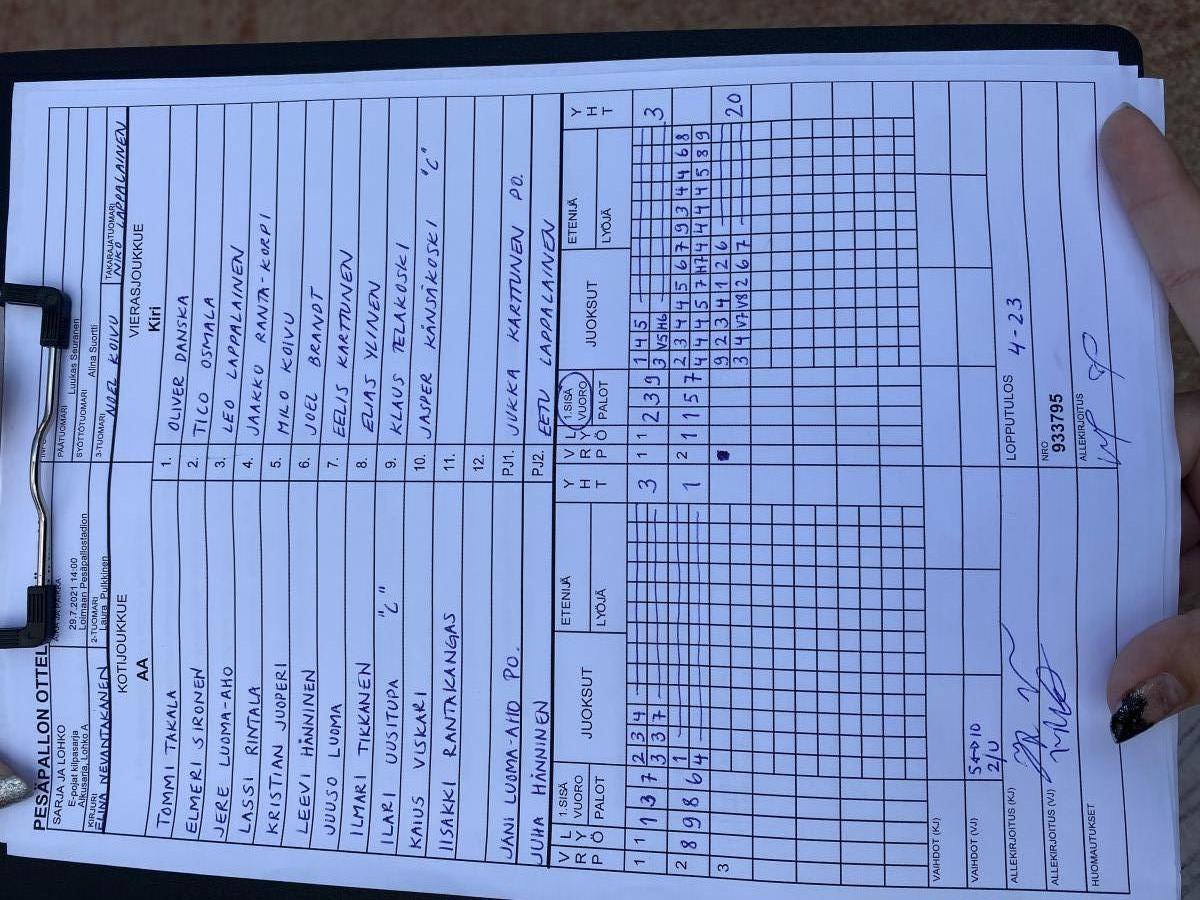 PESÄPALLON OTTEL
SARJA JA LOHKO
E-pojat kilpasarja
Alkusarja, Lohko A
AIKA JA PAIKKA
29.7.2021 14:00
Loimaan Pesäpallostadion
PÄÄTUOMARI Luukas Seuranen
SYÖTTÖTUOMARI Alina Suortti
KIRJURI ELINA NEVANTAKANEN
2-TUOMARI Laura Pulkkinen
3-TUOMARI NOEL KOIVU
TAKARAJATUOMARI NIKO LAPPALAINEN
KOTIJOUKKUE VIERASJOUKKUE
AA Kiri
TOMMI TAKALA 1. OLIVER DANSKA
ELMERI SIRONEN 2. TICO OSMALA
JERE LUOMA-AHO 3. LEO LAPPALAINEN
LASSI RINTALA 4. JAAKKO RANTA-KORPI
KRISTIAN JUOPERI 5. MILO KOIVU
LEEVI HÄNNINEN 6. JOEL BRANDT
JUUSO LUOMA 7. EELIS KARTTUNEN
ILMARI TIKKANEN 8. ELIAS YLINEN
ILARI UUSITUPA "C" 9. KLAUS TELAKOSKI
KAIUS VISKARI 10. JASPER KÄNSÄKOSKI "C"
IISAKKI RANTAKANGAS 11.
12.
JANI LUOMA-AHO PO. PJ1. JUKKA KARTTUNEN PO.
JUHA HÄNNINEN PJ2. EETU LAPPALAINEN
V R P L Y Ö 1.SISÄ VUORO PALOT JUOKSUT ETENIJÄ LYÖJÄ Y H T V R P L Y Ö 1.SISÄ VUORO PALOT JUOKSUT ETENIJÄ LYÖJÄ Y H T
1 1 1 3 7 2 3 4 3 1 1 2 3 9 1 4 5 3
3 3 7 3 V5 H6
2 8 9 8 6 1 1 2 1 1 5 7 2 3 4 4 5 6 7 9 3 4 4 6 8
4 4 4 4 5 7 H7 4 4 4 4 5 8 9
3 9 2 3 4 1 2 6 20
3 4 V7 V8 2 6 7
VAIHDOT (KJ)
VAIHDOT (VJ) 5↔10
2/U
ALLEKIRJOITUS (KJ) LOPPUTULOS 4-23
ALLEKIRJOITUS (VJ) NRO 933795
HUOMAUTUKSET ALLEKIRJOITUS